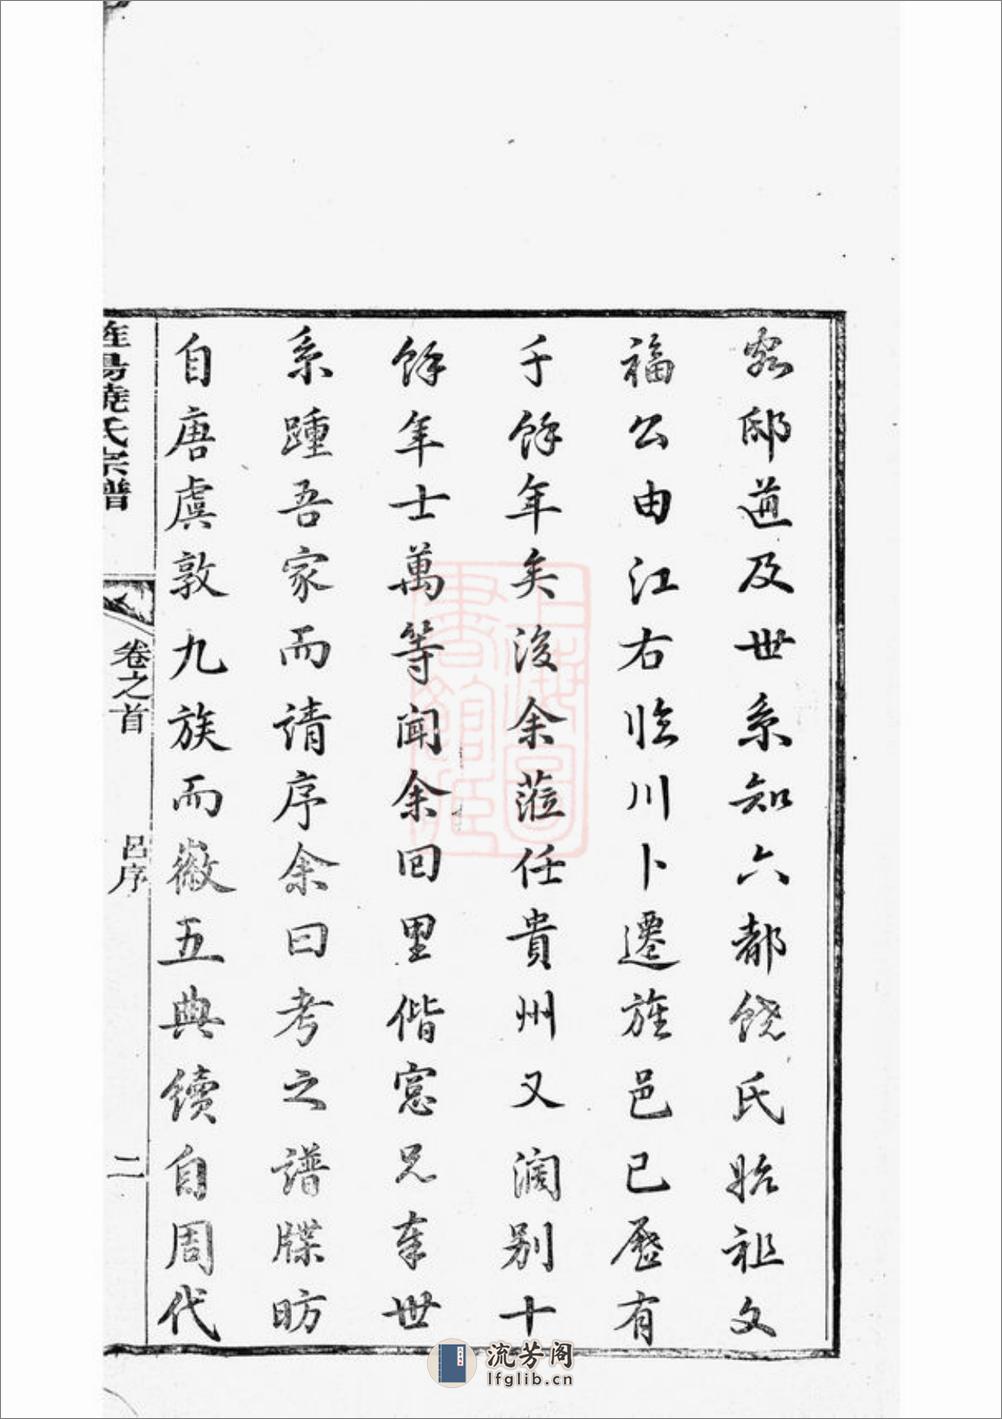 客邸道及世系知六都饒氏始祖文
福公由江右临川卜遷旌邑已歷有
千餘年矣後余蒞任貴州又濶别十
餘年士萬等聞余回里偕窓兄奉世
系踵吾家而请序余曰考之譜牒昉
自唐虞敦九族而徽五典續自周代
旌昜饒氏宗譜
卷之首
吕序
二
上海圖書館藏
流芳阁
lfglib.cn